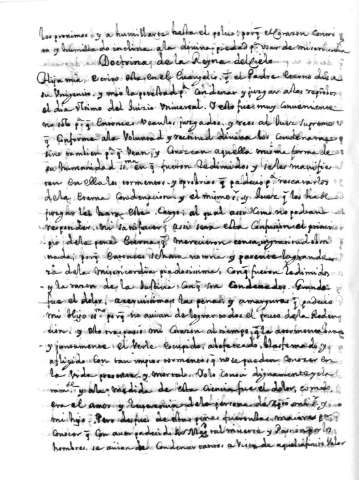 los proximos, y a humillarte hasta el polvo; porq̃ el corazon contri
y humillado inclina a la divina piedad pª usar de misericordia
Doctrina de la Reyna del cielo
Hija mia, escrito esta en el evangelio, q̃ el Padre Eterno dio a
su Unigenito, y mio la potestad pª condenar y juzgar a los reprobos
el dia ultimo del Juicio Universal. Y esto fue muy conveniente
no solo pª q̃ entonces vean los juzgados, y reos al Juez supremo
q̃ conforme a la voluntad y rectitud divina los condenara
sino tambien pª q̃ vean, y conozcan aquella misma forma de
su humanidad en q̃ fueron redimidos y se les manifies
ten en ella los tormentos, y oprobrios q̃ padecio pª rescatarlos
de la eterna condenacion y el mismo, y Juez q̃ los ha de
juzgar les hara este cargo; al qual assi como no podran
responder, ni satisfacer; assi sera esta confusion el princi
pio de la pena eterna q̃ merecieron con su ingratitud obsti
nada, porq̃ entonces se hara notoria y patente la grandeza
de la misericordia piadosissima, con q̃ fueron redimidos
y la razon de la Justicia con q̃ son condenados. Grande
fue el dolor, acerbissimas las penas y amarguras q̃ padecio
mi Hijo porq̃ no avian de lograr todos el fruto de la Reden
cion, y esto traspaso mi corazon al tiempo q̃ le atormentaban
y juntamente el verle escupido, abofeteado, blasfemado y
afligido con tan impios tormentos q̃ no se pueden conocer en
la vida presente y mortal. Yo la conoci dignamente y clara
y a la medida de esta ciencia fue el dolor, como
era el amor y reverencia de la persona de Xpto y
mi hijo. Pero despues de estas penas fueron las mayores pª
conocer q̃ con aver padecido su Magᵈ tal muerte y Passion por los
hombres se avian de condenar tantos a vista de aquel infinito valor